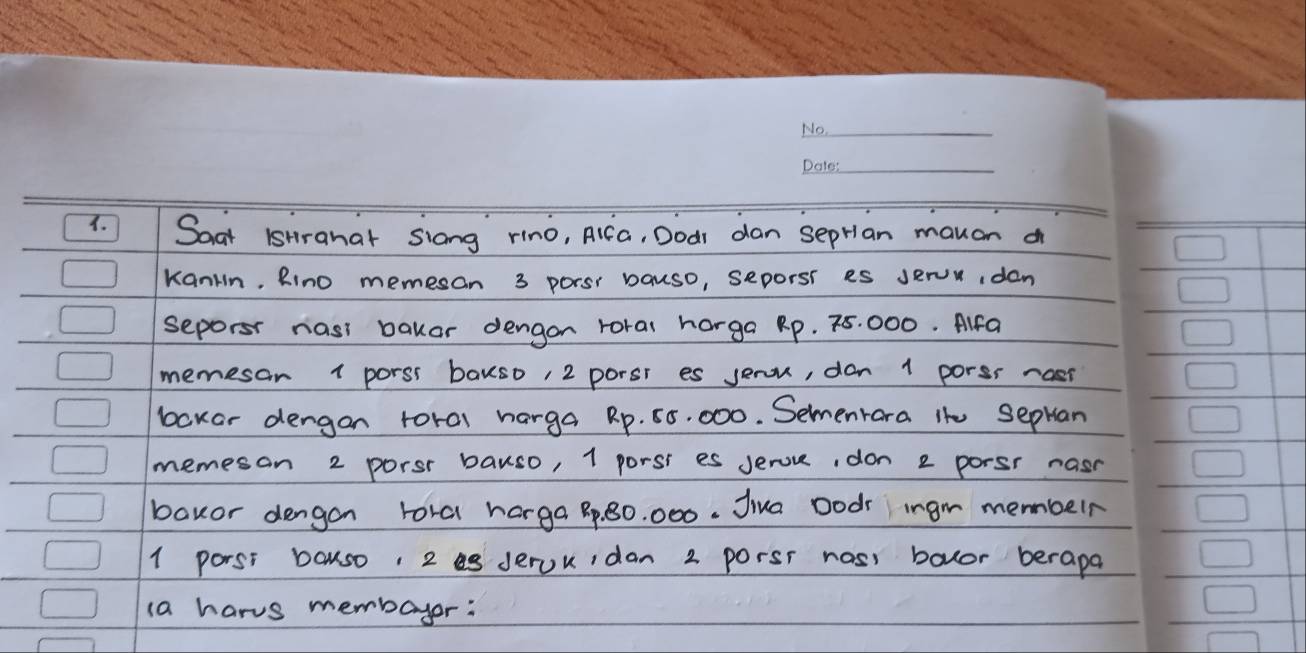 No.
Date:
1. Saat istirahat siang rino, Alfa, Dodi dan septian makan di
kantin. Rino memesan 3 porsi bakso, seporsi es jeruk, dan
seporsi nasi bakar dengan total harga Rp. 75.000. Alfa
memesan 1 porsi bakso, 2 porsi es jeruk, dan 1 porsi nasi
bakar dengan total harga Rp. 55.000. Sementara itu septian
memesan 2 porsi bakso, 1 porsi es jeruk, dan 2 porsi nasi
bakar dengan total harga Rp.80.000. Jika Dodi ingin membeli
1 porsi bakso, 2 es jeruk, dan 2 porsi nasi bakar berapa
ia harus membayar: